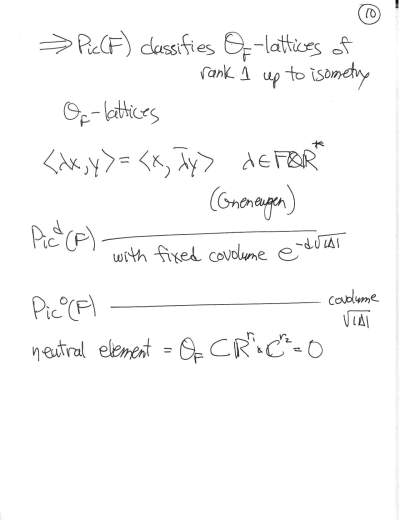 10
⇒ Pic(F) classifies O_F-lattices of
rank 1 up to isometry
O_F-lattices
<λx,y> = <x, λ̄y> λ∈F⊗R^*
Pic^d(F) ———— with fixed covolume e^{-d}√|Δ|
Pic^0(F) ———— covolume √|Δ|
neutral element = O_F ⊂ R^{r_1} × C^{r_2} = O